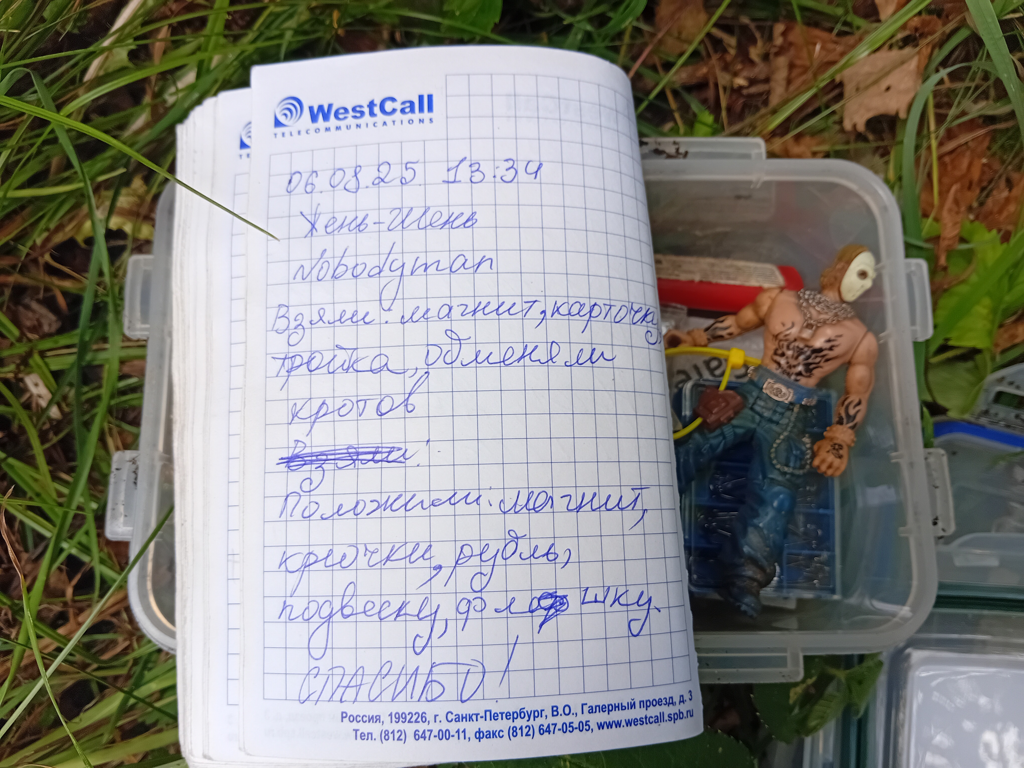 WestCall
TELECOMMUNICATIONS
06.08.25 13:34
Жень-Шень
Nobodyman
Взяли: магнит, карточку
тройка, обменяли
кротов
Взяли:
Положили: магнит,
крючки, рубль,
подвеску, флэшку.
СПАСИБО!
Россия, 199226, г. Санкт-Петербург, В.О., Галерный проезд, д. 3
Тел. (812) 647-00-11, факс (812) 647-05-05, www.westcall.spb.ru